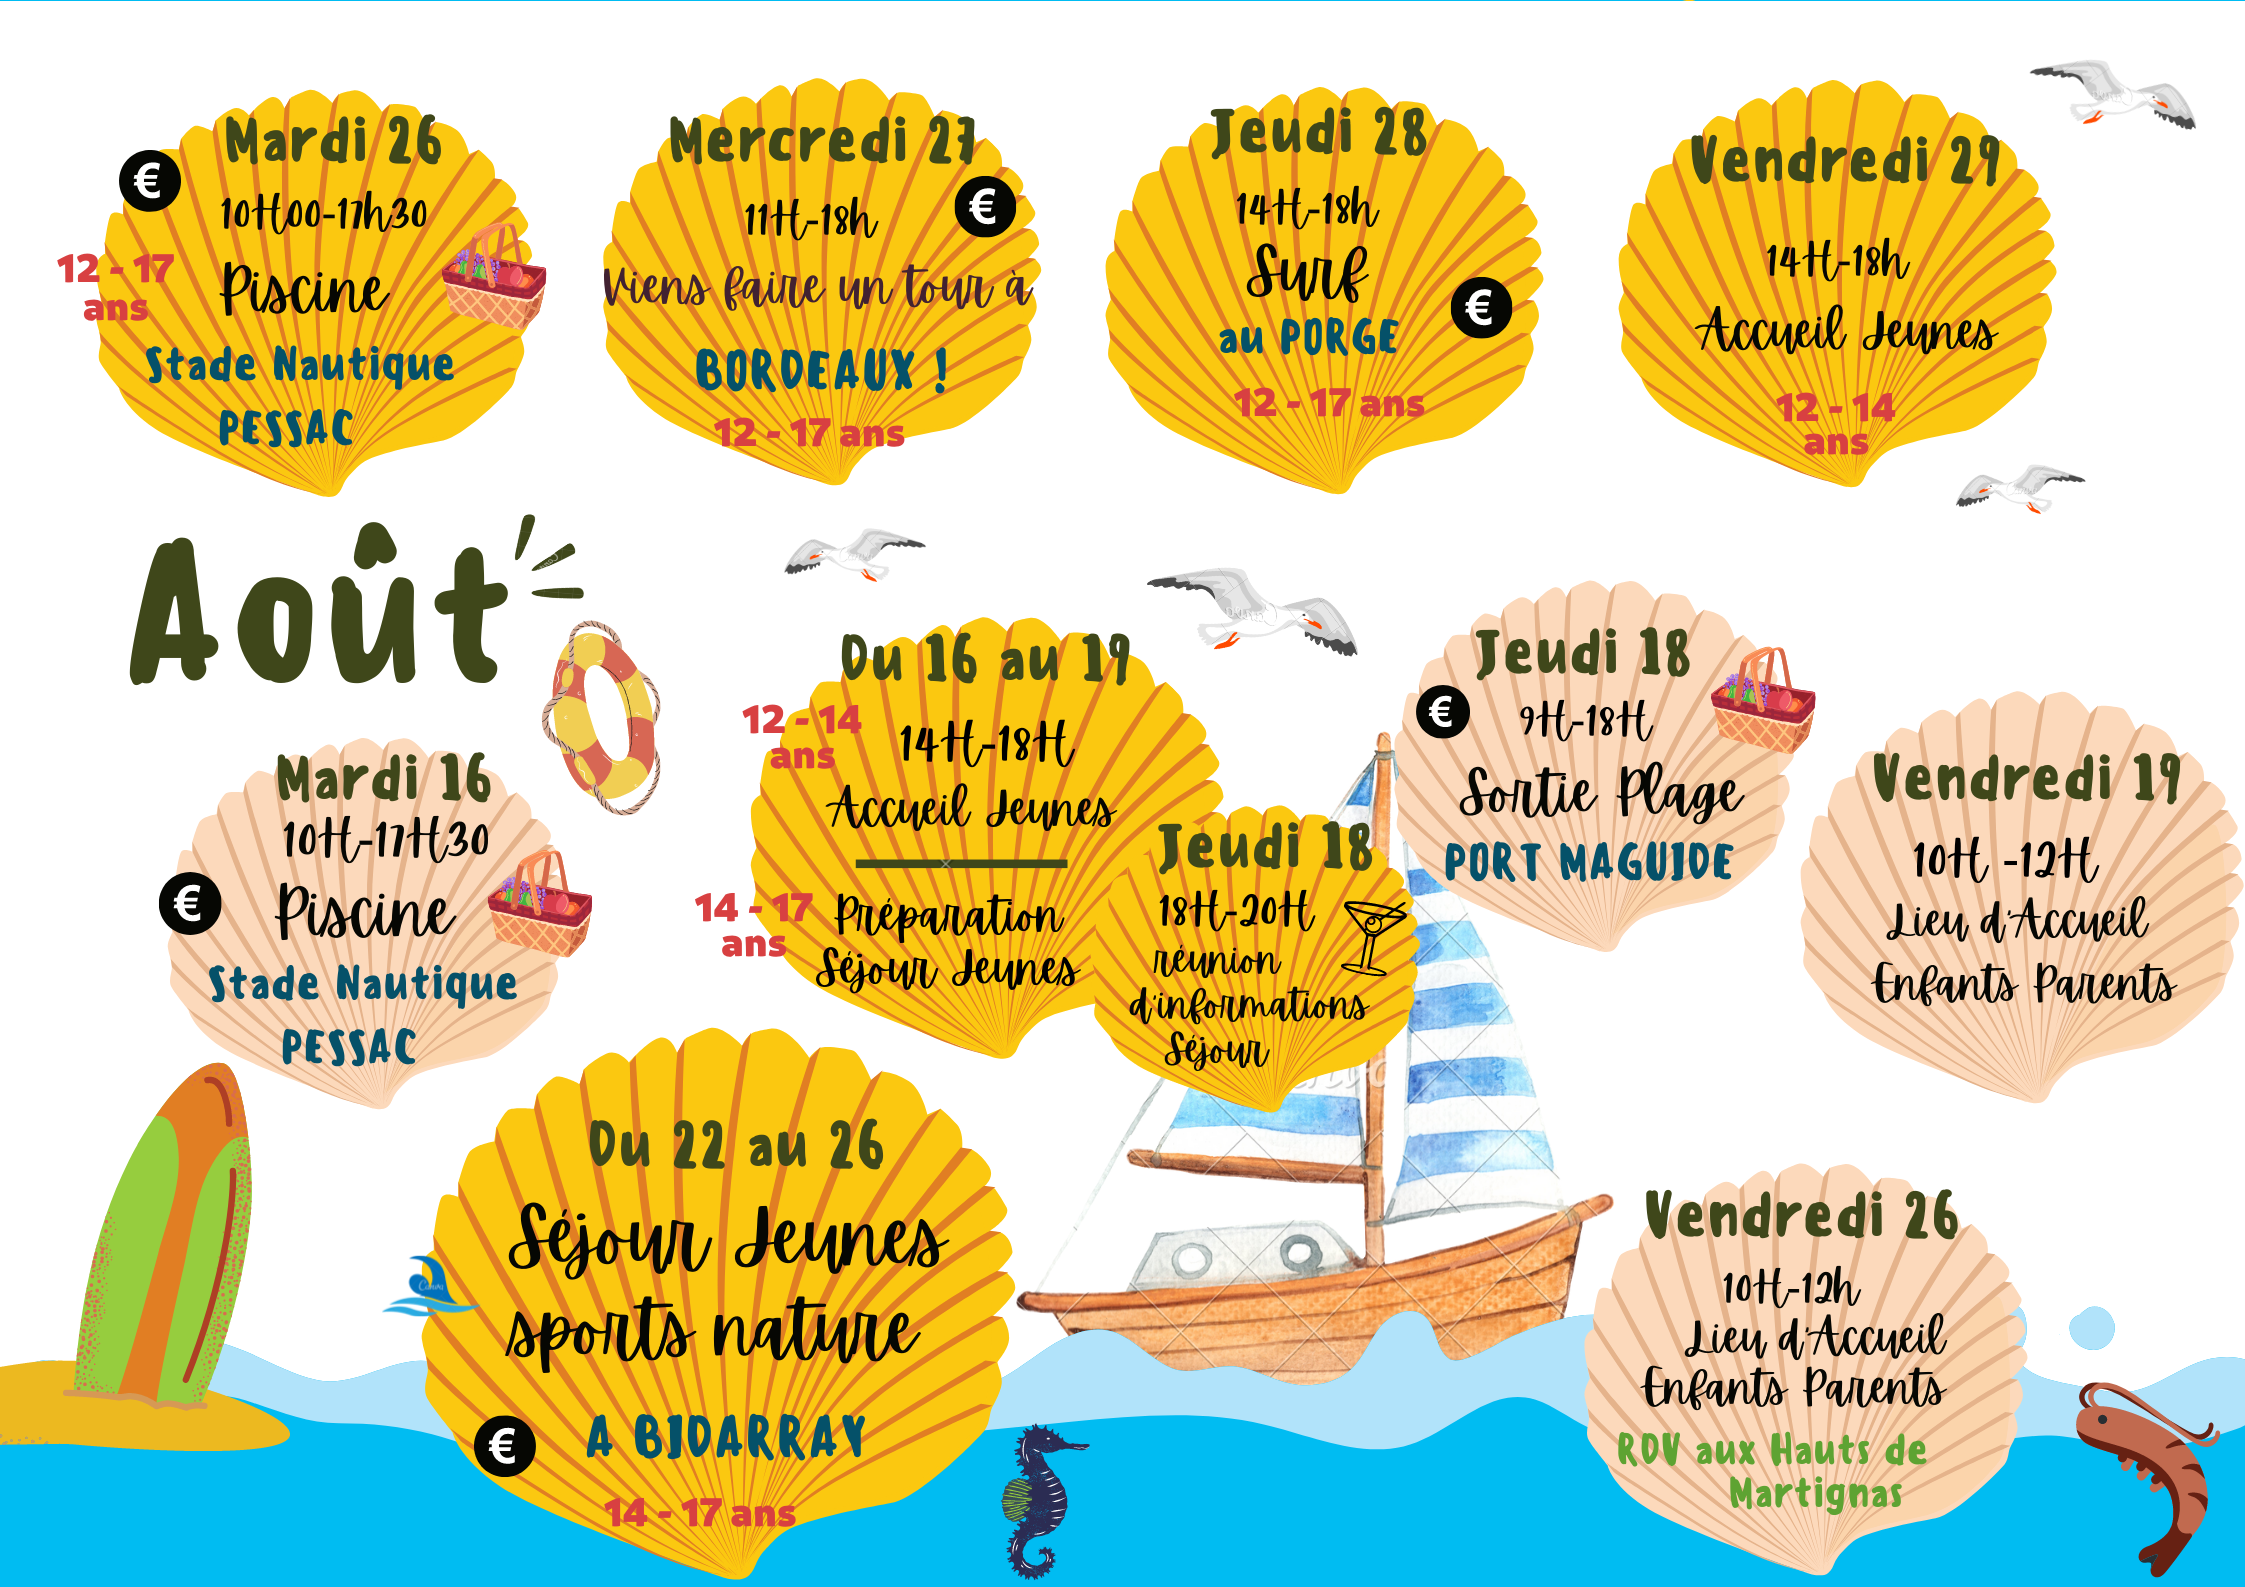 Mardi 26
10H00-17h30
Piscine
Stade Nautique
PESSAC
€
12 - 17
ans
Mercredi 27
11H-18h
€
Viens faire un tour à
BORDEAUX !
12 - 17 ans
Jeudi 28
14H-18h
Surf
au PORGE
€
12 - 17 ans
Vendredi 29
14H-18h
Accueil Jeunes
12 - 14
ans
Août
Mardi 16
10H-17H30
Piscine
€
Stade Nautique
PESSAC
Du 16 au 19
12 - 14
ans
14H-18H
Accueil Jeunes
14 - 17
ans
Préparation
Séjour Jeunes
Jeudi 18
18H-20H
réunion
d'informations
Séjour
Jeudi 18
€
9H-18H
Sortie Plage
PORT MAGUIDE
Vendredi 19
10H -12H
Lieu d'Accueil
Enfants Parents
Du 22 au 26
Séjour Jeunes
sports nature
€
A BIDARRAY
14 - 17 ans
Vendredi 26
10H-12h
Lieu d'Accueil
Enfants Parents
RDV aux Hauts de
Martignas